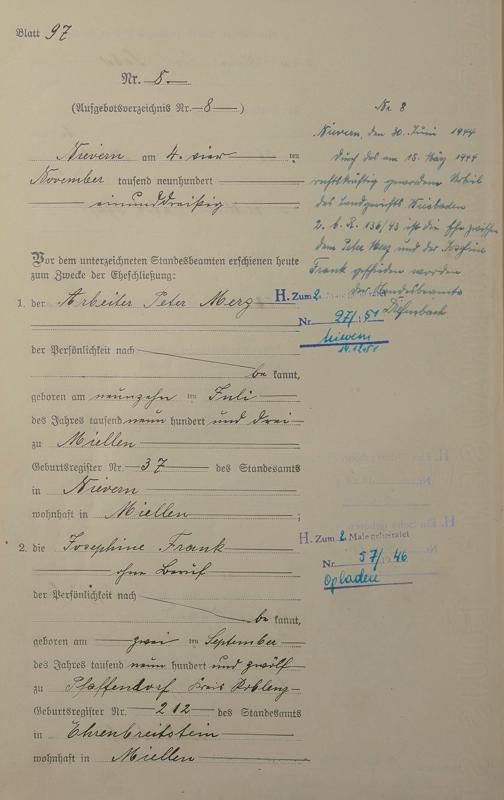 Blatt 97
Nr. 8.
(Aufgebotsverzeichnis Nr. 8)
Nievern am 4. vier ten
November tausend neunhundert
einunddreißig
Vor dem unterzeichneten Standesbeamten erschienen heute
zum Zwecke der Eheschließung:
1. der Arbeiter Peter Merz
der Persönlichkeit nach
be kannt,
geboren am neunzehn ten Juli
des Jahres tausend neun hundert und drei
zu Miellen
Geburtsregister Nr. 37 des Standesamts
in Nievern
wohnhaft in Miellen ;
2. die Josephine Frank
ohne Beruf
der Persönlichkeit nach
be kannt,
geboren am zwei ten September
des Jahres tausend neun hundert und zwölf
zu Pfaffendorf Kreis Koblenz
Geburtsregister Nr. 212 des Standesamts
in Ehrenbreitstein
wohnhaft in Miellen
Nr 8
Nievern, den 30. Juni 1944
Durch das am 15. März 1944
rechtskräftig gewordene Urteil
des Landgerichts Wiesbaden
2. b. R. 136/43 ist die Ehe zwischen
dem Peter Merz und der Josephine
Frank geschieden worden
Der Standesbeamte
Diefenbach
H. Zum 2.
Nr. 27/51
Nievern
14.12.51
H. Zum 2 Male geheiratet
Nr. 57/1946
Opladen